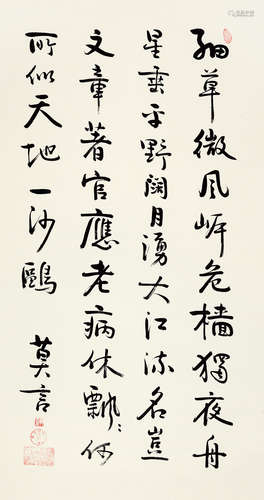 細草微風岸危檣獨夜舟
星垂平野闊月湧大江流名豈
文章著官應老病休飄〻何
所似天地一沙鷗
莫言